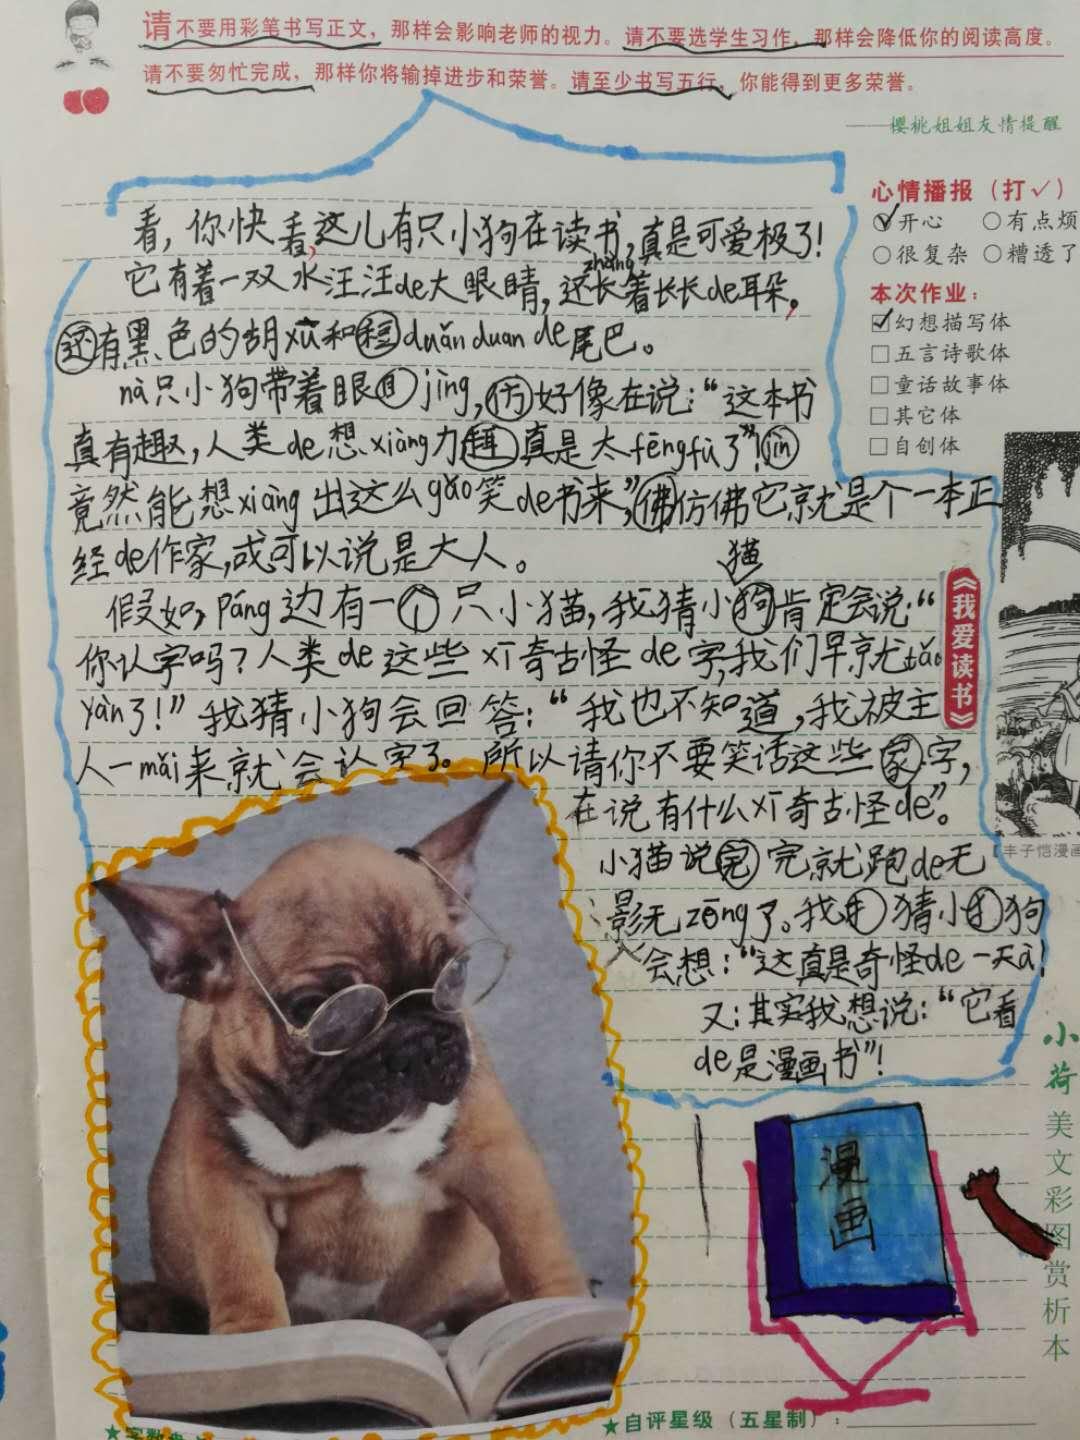 请不要用彩笔书写正文，那样会影响老师的视力。请不要选学生习作，那样会降低你的阅读高度。
请不要匆忙完成，那样你将输掉进步和荣誉。请至少书写五行，你能得到更多荣誉。
——樱桃姐姐友情提醒
心情播报（打✓）
开心 ○有点烦
○很复杂 ○糟透了
本次作业：
☑幻想描写体
□五言诗歌体
□童话故事体
□其它体
□自创体
看，你快看，这儿有只小狗在读书，真是可爱极了！
它有着一双水汪汪de大眼睛，还长着长长de耳朵，
zhǎng
还有黑色的胡xū和 duǎn duan de尾巴。
nà只小狗带着眼 jìng，仿好像在说：“这本书
真有趣，人类de想xiàng力 真是太fēngfù了”！jìn
竟然能想xiàng出这么gǎo笑de书来，”佛仿佛它就是个一本正
经de作家，或可以说是大人。
猫
假如，páng边有一个只小猫，我猜小狗肯定会说：“
你认字吗？人类de这些xī奇古怪de字，我们早就tǎo
yàn了！”我猜小狗会回答：“我也不知道，我被主
人一mǎi来就会认字了。所以请你不要笑话这些家字，
在说有什么xī奇古怪de”。
小猫说完完就跑de无
影无zōng了。我 猜小 狗
会想：“这真是奇怪de一天à！
又：其实我想说：“它看
de是漫画书”！
《我爱读书》
丰子恺漫画
漫画
小荷美文彩图赏析本
★自评星级（五星制）：